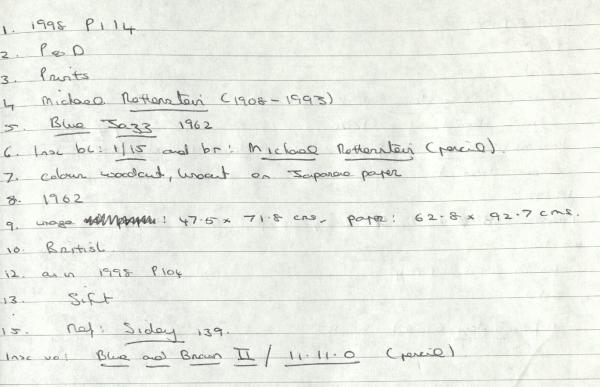 1. 1998 P114
2. P&D
3. Prints
4. Michael Rothenstein (1908-1993)
5. Blue Jazz 1962
6. Insc bl: 1/15 and br: Michael Rothenstein (pencil).
7. colour woodcut, linocut on Japanese paper
8. 1962
9. image : 47.5 x 71.8 cms, paper: 62.8 x 92.7 cms.
10. British
12. as in 1998 P104
13. Gift
15. Ref: Sidey 139.
Insc vo: Blue and Brown II / 11.11.0 (pencil)